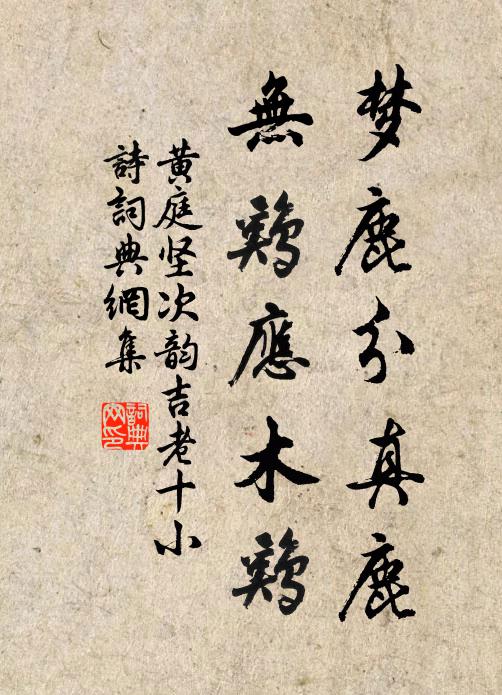 梦鹿分真鹿
無鷄應木鷄
黄庭坚次韵吉老十小
詩詞典網集
詞典网印